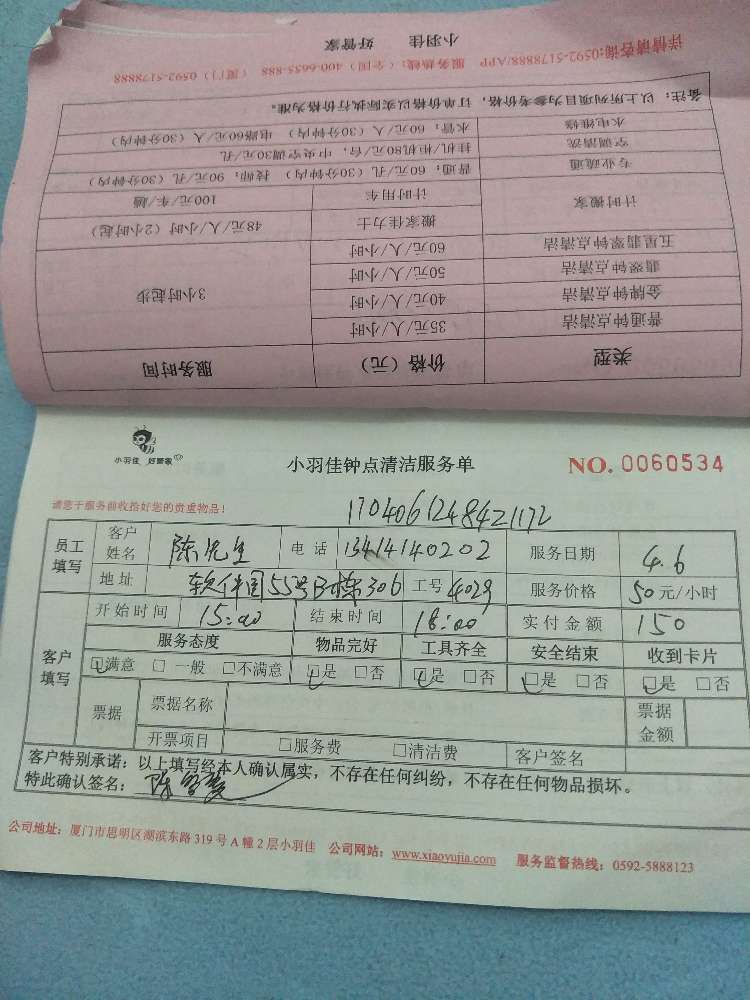 小羽佳 好管家
详情请咨询:0592-5178888/APP 服务热线:(全国)400-6655-888 (厦门)0592-5178888
类型 价格(元) 服务时间
普通钟点清洁 35元/人/小时 3小时起步
金牌钟点清洁 40元/人/小时
翡翠钟点清洁 50元/人/小时
五星翡翠钟点清洁 60元/人/小时
计时搬家 搬家佳力士 48元/人/小时(2小时起)
计时用车 100元/车/趟
专业疏通 普通:60元/孔(30分钟内) 技师:90元/孔(30分钟内)
空调清洗 挂机/柜机80元/台,中央空调30元/孔
水电维修 水管:60元/人(30分钟内) 电路60元/人(30分钟内)
备注:以上所列项目为参考价格,订单价格以实际执行价格为准。
小羽佳 好管家
小羽佳钟点清洁服务单 NO. 0060534
请您于服务前收拾好您的贵重物品!
1704061248421172
员工填写 客户姓名 陈先生 电话 13414140202 服务日期 4.6
地址 软件园55号B栋306 工号 4029 服务价格 50元/小时
客户填写 开始时间 15:00 结束时间 18:00 实付金额 150
服务态度 物品完好 工具齐全 安全结束 收到卡片
□满意 □一般 □不满意 □是 □否 □是 □否 □是 □否 □是 □否
票据 票据名称 票据金额
开票项目 □服务费 □清洁费 客户签名
客户特别承诺:以上填写经本人确认属实,不存在任何纠纷,不存在任何物品损坏。
特此确认签名:陈
公司地址:厦门市思明区湖滨东路319号A幢2层小羽佳 公司网站:www.xiaoyujia.com 服务监督热线:0592-5888123